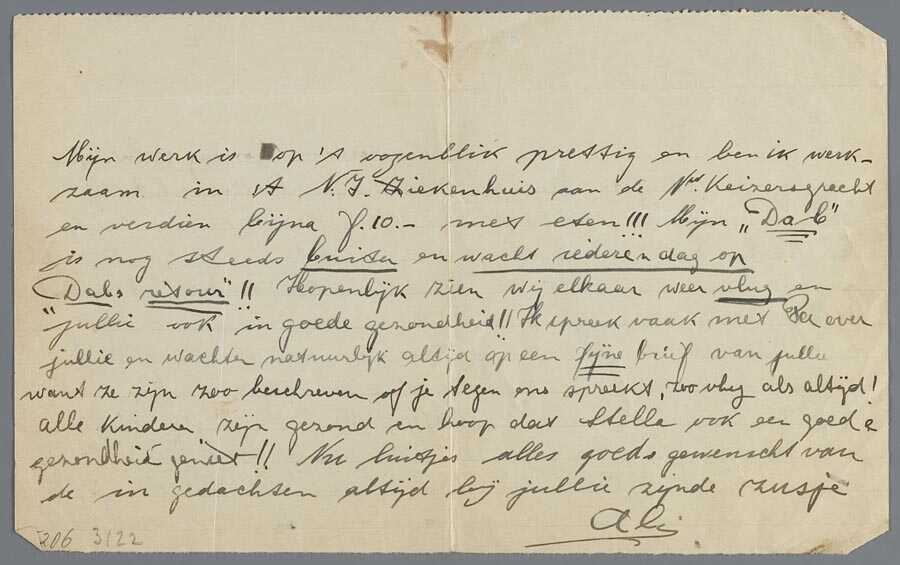 Mijn werk is op 't oogenblik prettig en ben ik werk-
zaam in 't N.I. Ziekenhuis aan de Nwe. Keizersgracht
en verdien bijna f. 10.- met eten!!! Mijn "Dab"
is nog steeds buiten en wacht iederen dag op
Dabs "retour"!! Hopenlijk zien wij elkaar weer vlug en
jullie ook in goede gezondheid!! Ik spreek vaak met over
jullie en wachten natuurlijk altijd op een fijne brief van jullie
want ze zijn zoo beschreven of je tegen ons spreekt, zoo vlug als altijd!
alle kinderen zijn gezond en hoop dat Stella ook een goede
gezondheid geniet!! Nu luitjes alles goeds gewenscht van
de in gedachten altijd bij jullie zijnde zusje
Ali
206 3122